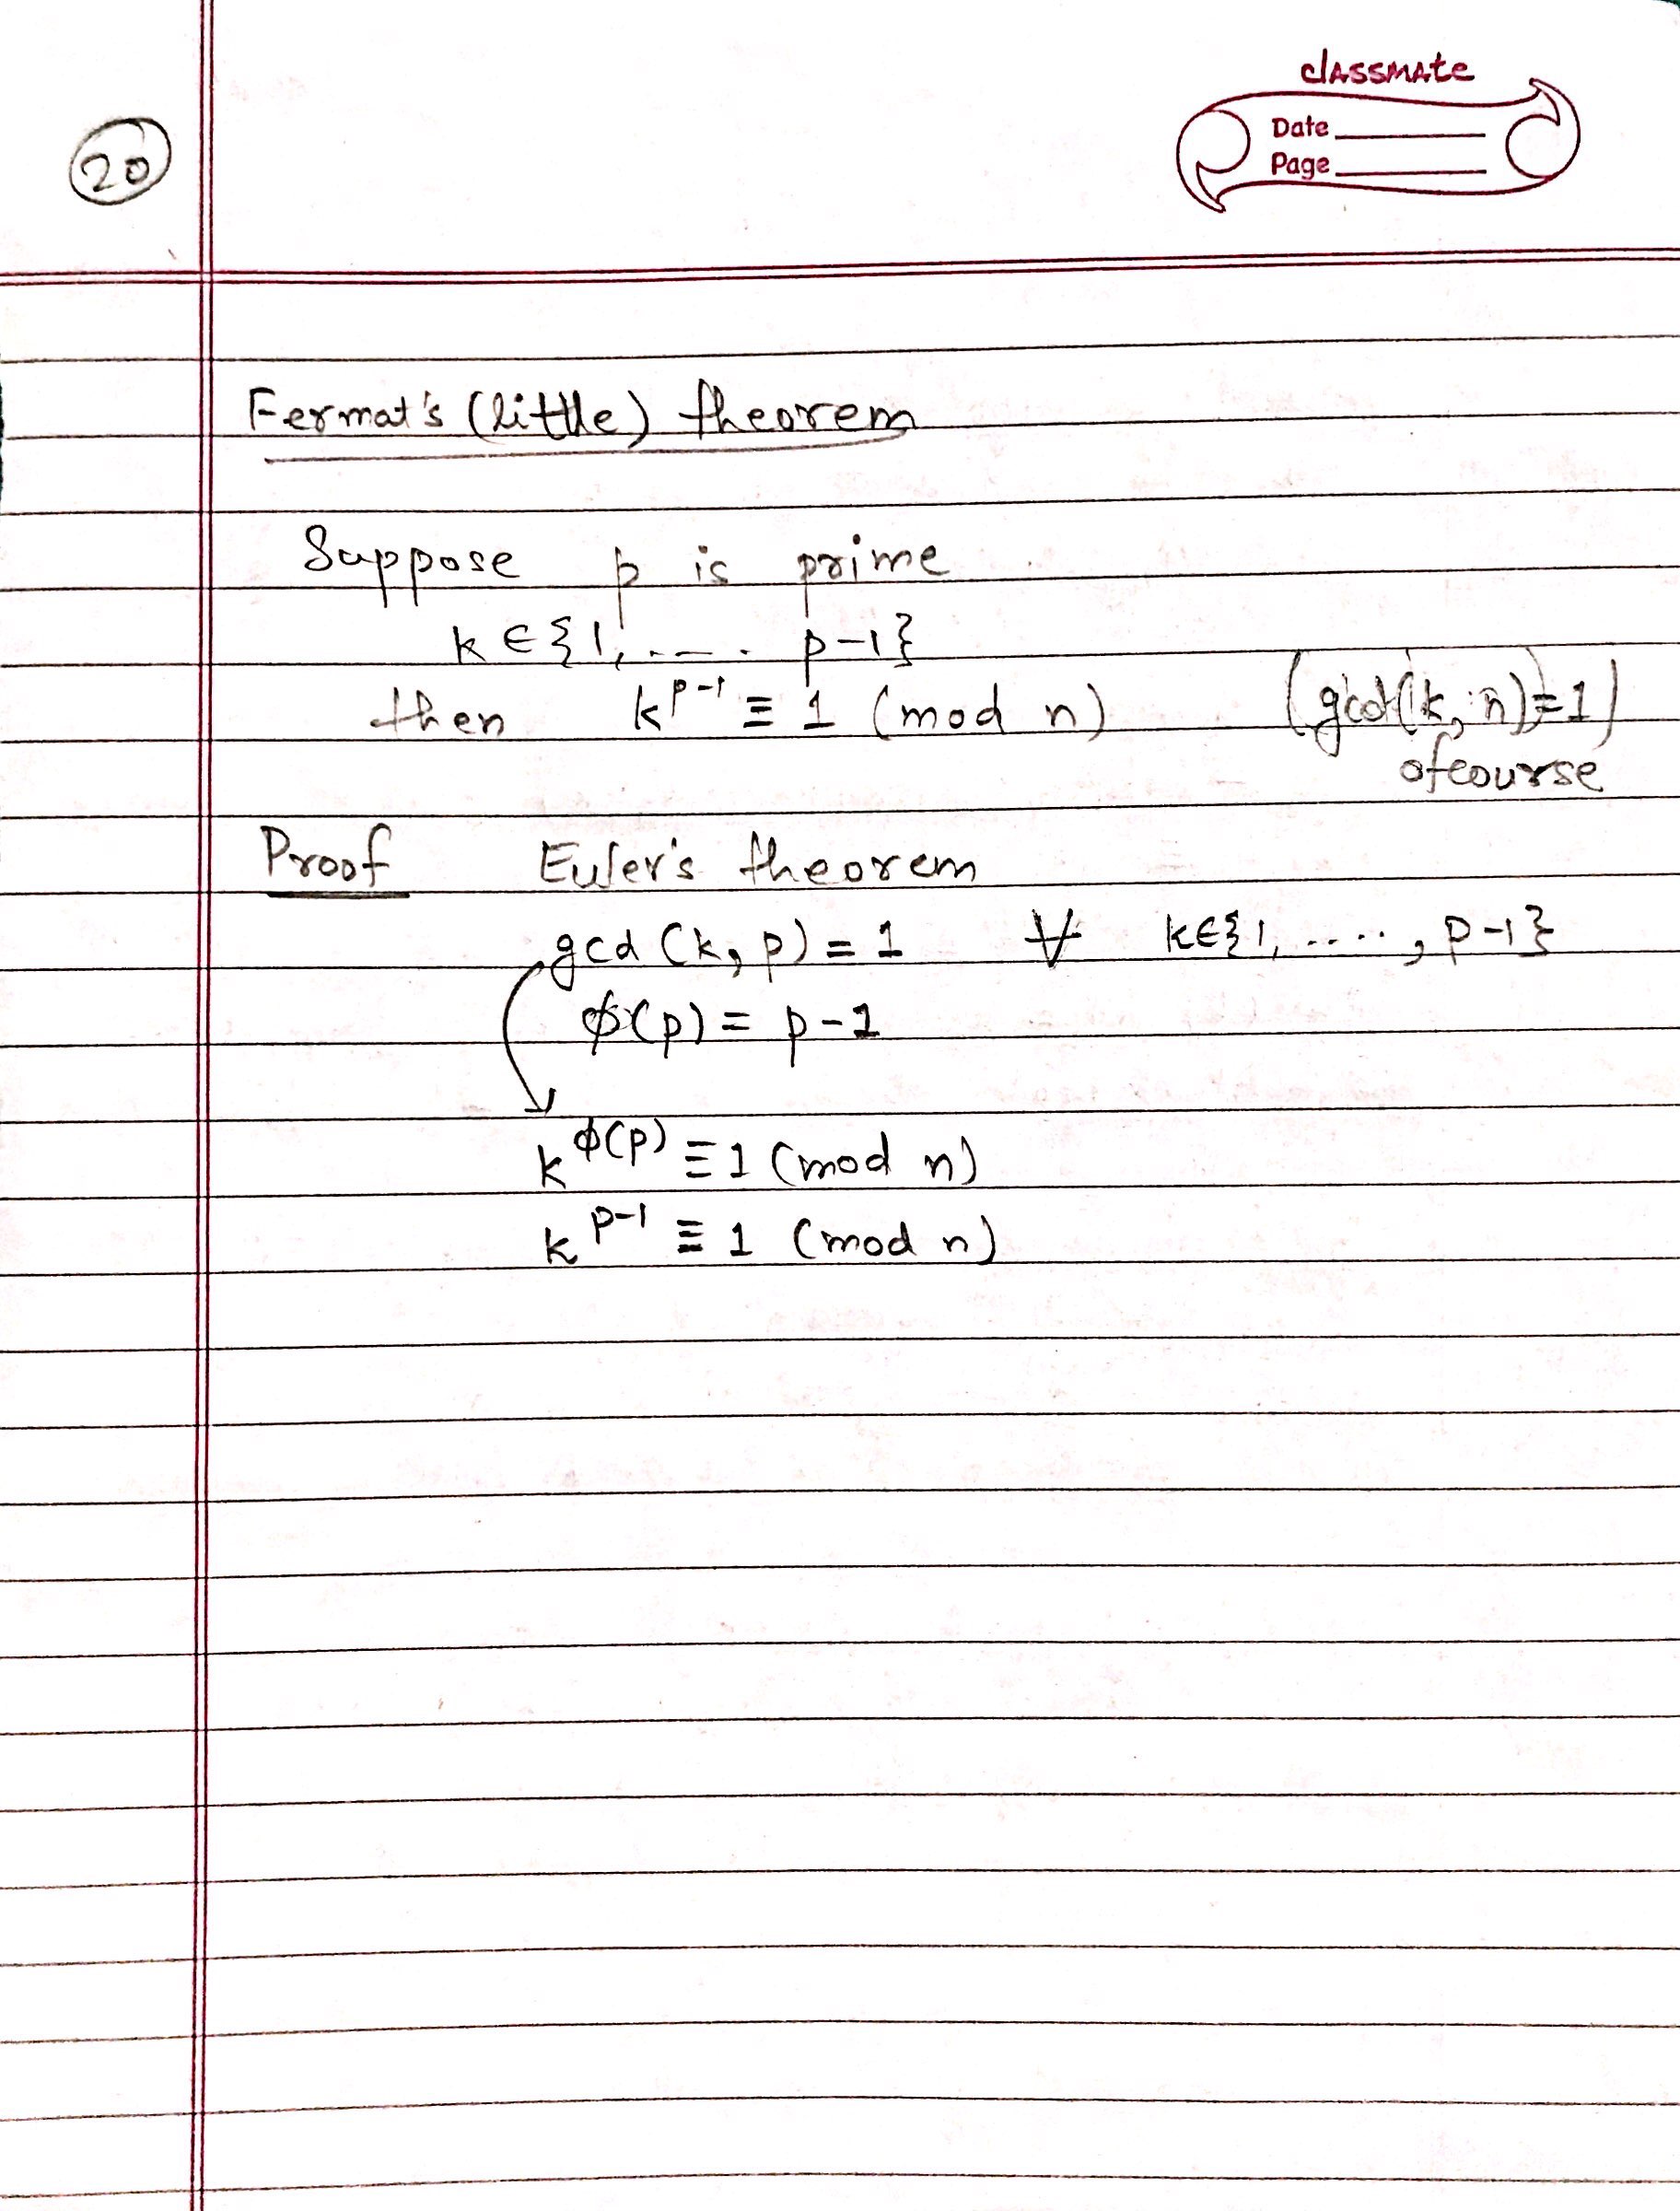 classmate
Date
Page
20
Fermat's (little) theorem
Suppose p is prime
k ∈ {1, .... p-1}
then k^{p-1} ≡ 1 (mod n) (gcd(k, n)=1)
ofcourse
Proof Euler's theorem
gcd (k, p) = 1 ∀ k∈{1, ...., p-1}
ϕ(p) = p-1
k^{ϕ(p)} ≡ 1 (mod n)
k^{p-1} ≡ 1 (mod n)